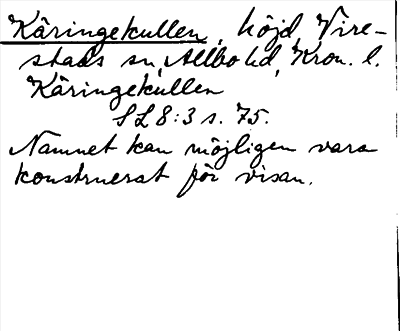 Käringekullen, höjd, Vire-
stads sn, Allbo hd, Kron. l.
Käringekullen
SL 8:3 s. 75.
Namnet kan möjligen vara
konstruerat för visan.